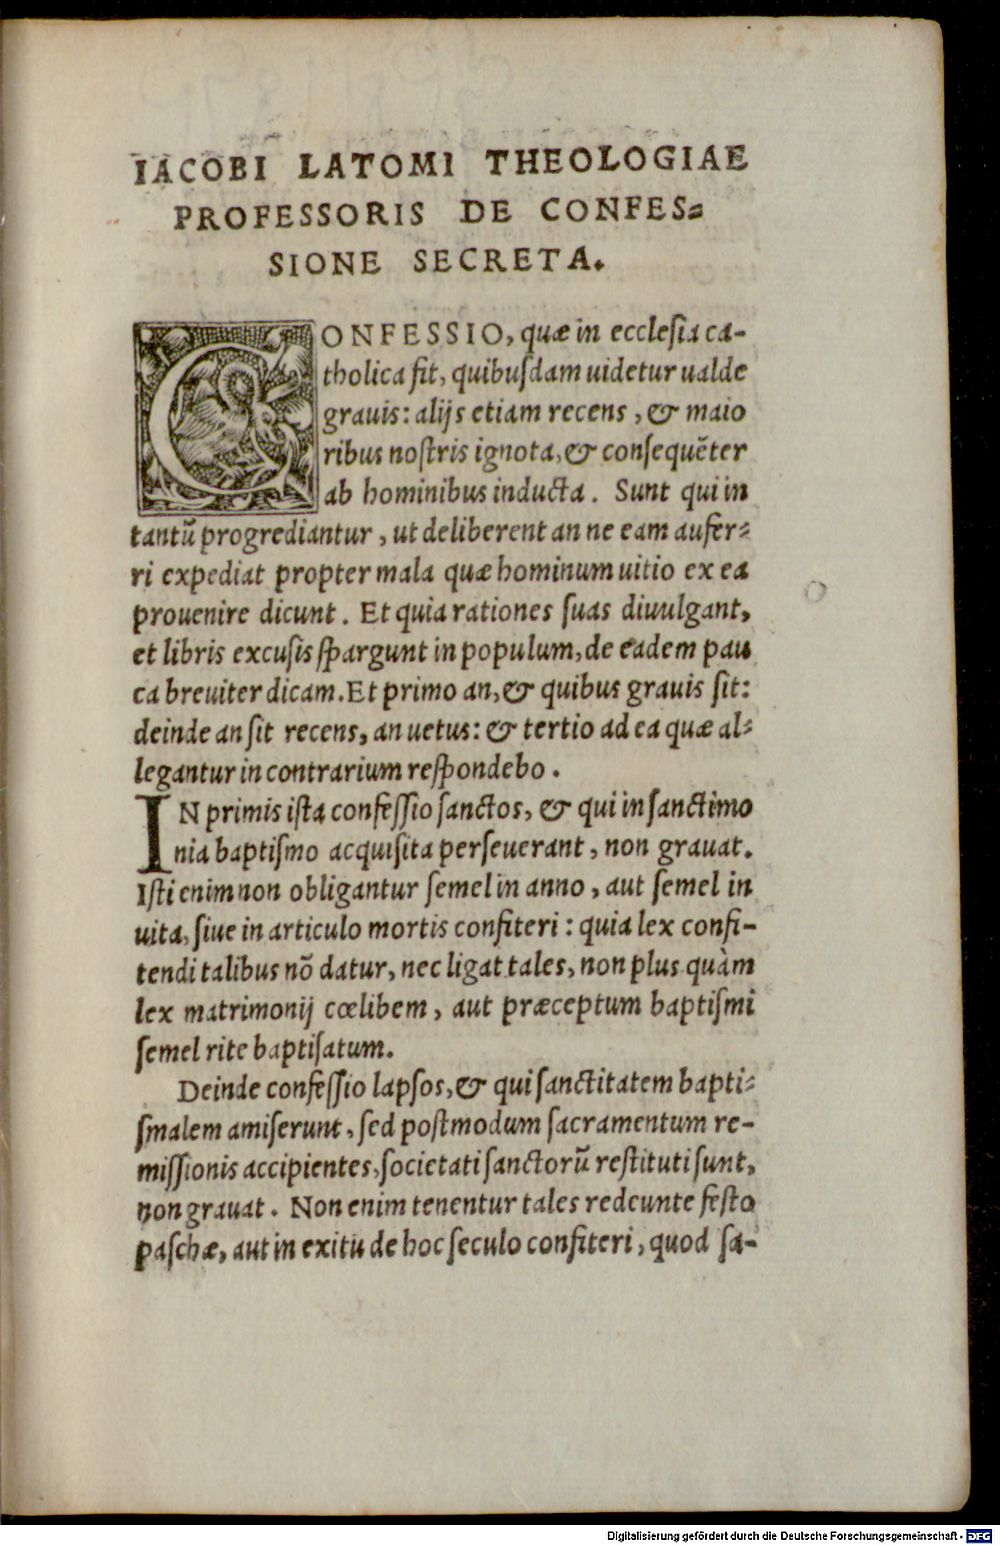 IACOBI LATOMI THEOLOGIAE
PROFESSORIS DE CONFES⸗
SIONE SECRETA.
CONFESSIO, quæ in ecclesia ca-
tholica fit, quibuſdam uidetur ualde
grauis: alijs etiam recens, & maio
ribus noſtris ignota, & conſequẽter
ab hominibus inducta. Sunt qui in
tantũ progrediantur, ut deliberent an ne eam aufer⸗
ri expediat propter mala quæ hominum uitio ex ea
prouenire dicunt. Et quia rationes ſuas diuulgant,
et libris excuſis ſpargunt in populum, de eadem pau
ca breuiter dicam. Et primo an, & quibus grauis ſit:
deinde an ſit recens, an uetus: & tertio ad ea quæ al⸗
legantur in contrarium reſpondebo.
IN primis iſta confeſſio ſanctos, & qui in ſanctimo
nia baptiſmo acquiſita perſeuerant, non grauat.
Iſti enim non obligantur ſemel in anno, aut ſemel in
uita, ſiue in articulo mortis confiteri: quia lex confi-
tendi talibus nõ datur, nec ligat tales, non plus quàm
lex matrimonij cœlibem, aut præceptum baptiſmi
ſemel rite baptiſatum.
Deinde confeſſio lapſos, & qui ſanctitatem bapti⸗
ſmalem amiſerunt, ſed poſtmodum ſacramentum re-
miſſionis accipientes, ſocietati ſanctorũ reſtituti ſunt,
non grauat. Non enim tenentur tales redeunte feſto
paſchæ, aut in exitu de hoc ſeculo confiteri, quod ſa-
Digitalisierung gefördert durch die Deutsche Forschungsgemeinschaft - DFG